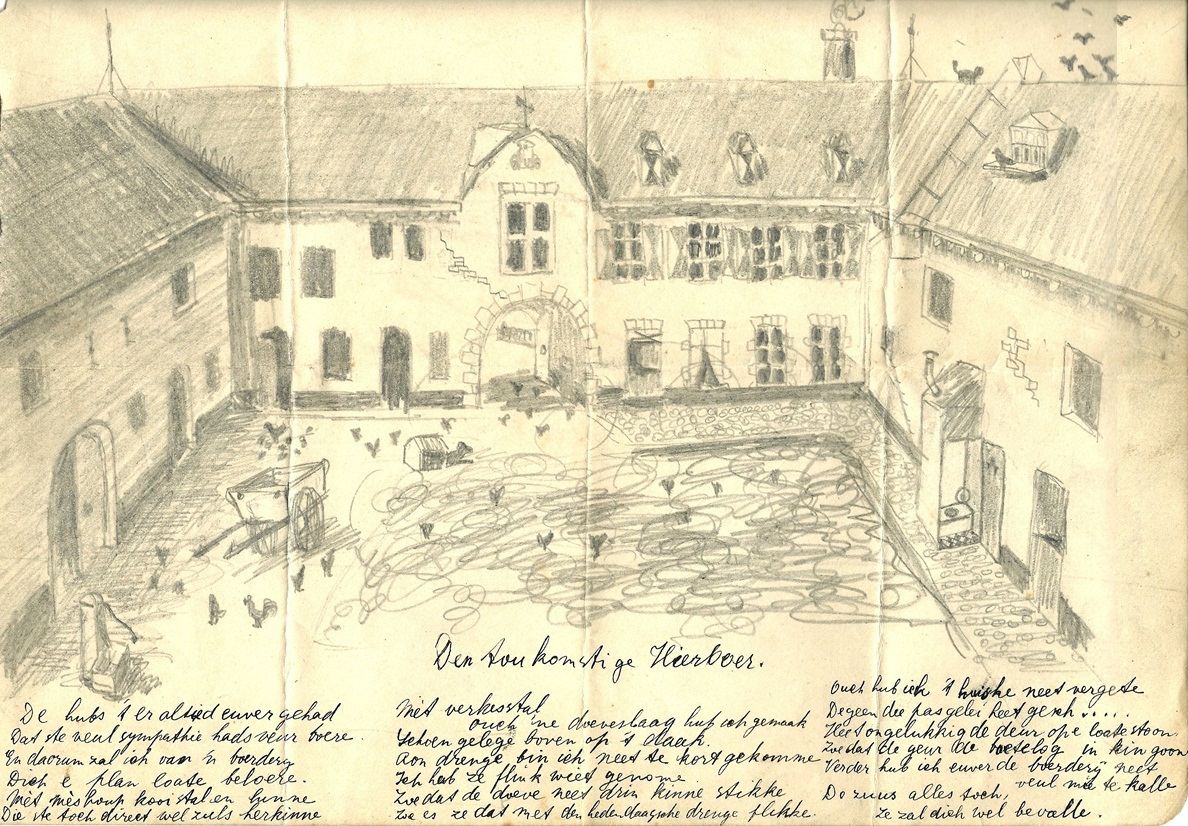 Den toukomstige Hierboer.
De hubs 't er altied euver gehad
Dat ste veul sympathie hads veur boere.
En daorum zal ich van 'n boerderij
Dich e plan loate beloere.
Mèt mèshoup kooistal en hunne
Die ste toch direct wel zuls herkinne
Mèt verkesstal
ouch 'ne doeveslaag hub ich gemaak
Schoen gelege boven op 't daak.
Aon drenge bin ich neet te kort gekomme
Ich hub ze flink wiet genome
Zoe dat de doeve neet drin kinne stikke
Zoe es ze dat met den hedendaagsche drenge flikke.
Ouch hub ich 't huiske neet vergete
Degeen dee pas gelei heet gesch.....
Heet ongelukkig de deur ope loate stoon
Zoe dat de geur de boetelog in kin goon
Verder hub ich euver de boerderij neet
veul mie te kalle
Do zuus alles toch,
ze zal dich wel bevalle.